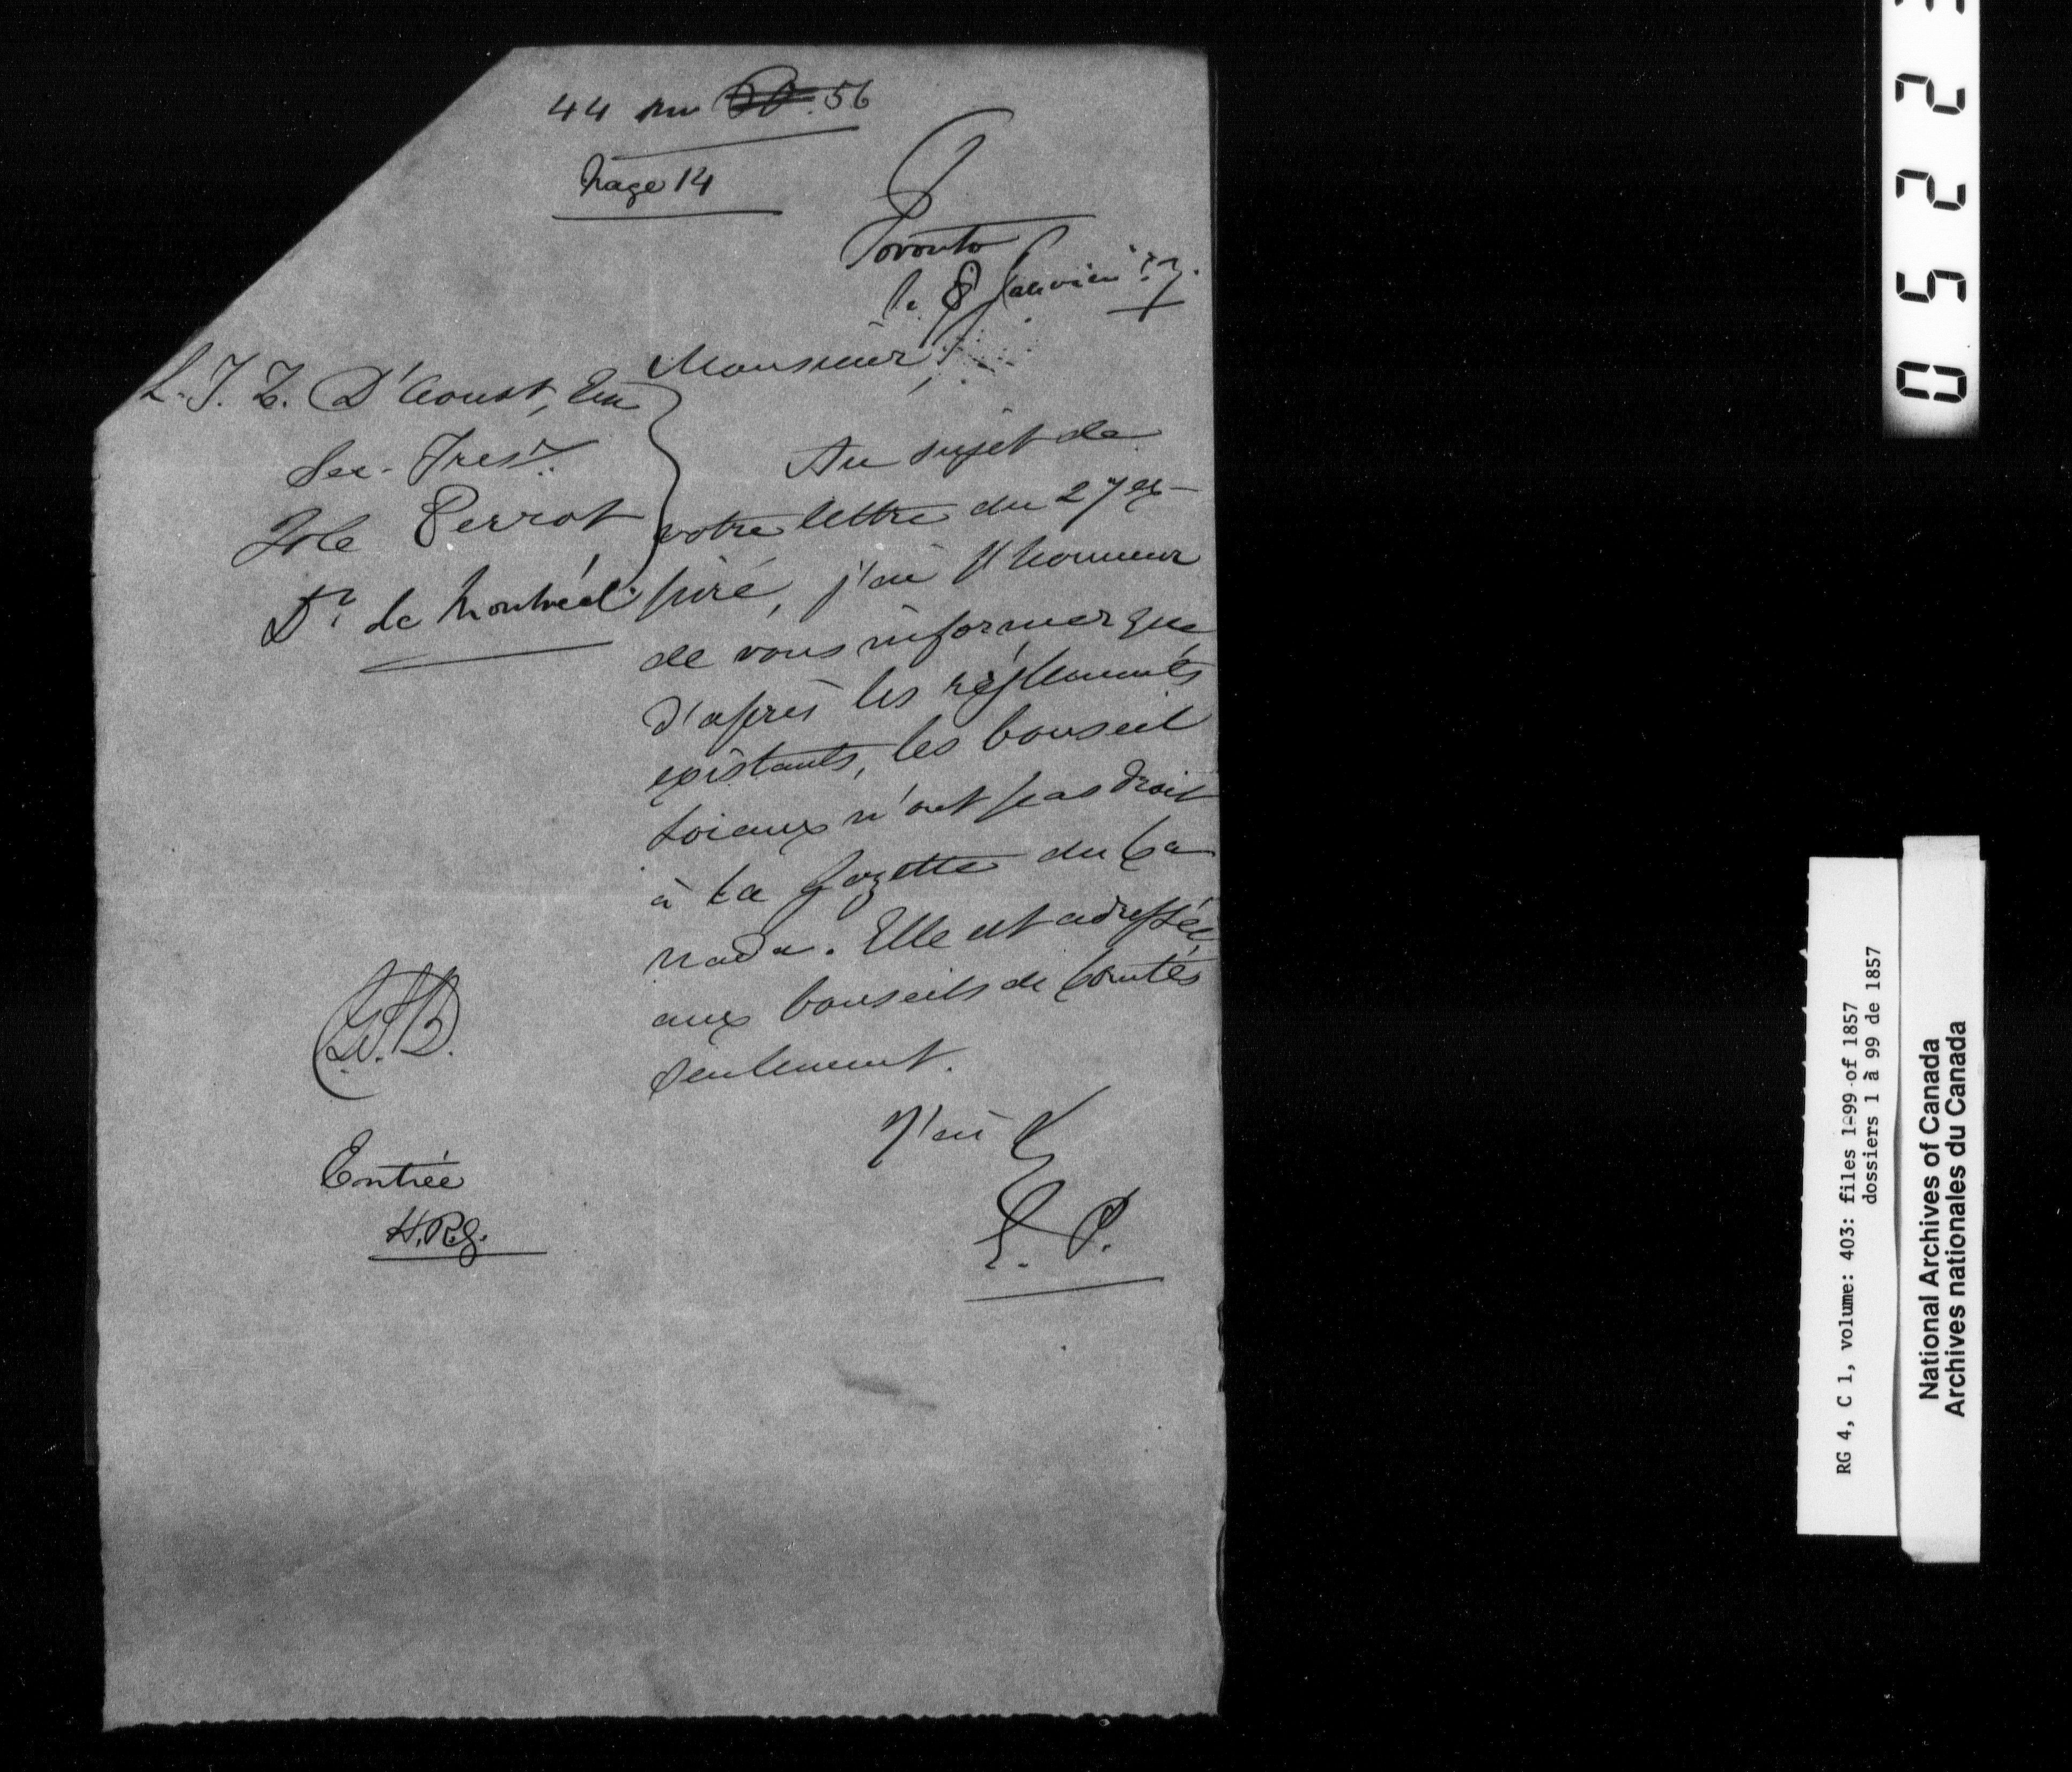 44 sur 56
Page 14
Toronto
le 8 Janvier 57.
Monsieur,
L. J. Z. D'Aoust, Ecu
Sec-Tresr.
Isle Perrot
Dt. de Montréal
Au sujet de
votre lettre du 27 ex-
piré, j'ai l'honneur
de vous informer que
d'après les règlements
existants, les Conseil
Loicaux n'ont pas droit
à la Gazette du Ca
nada. Elle est adressée
aux Conseils de Comtés
seulement.
J'ai &
E. P.
Entrée
H.R.G.
0522
RG 4, C 1, volume: 403: files 1-99 of 1857
dossiers 1 à 99 de 1857
National Archives of Canada
Archives nationales du Canada